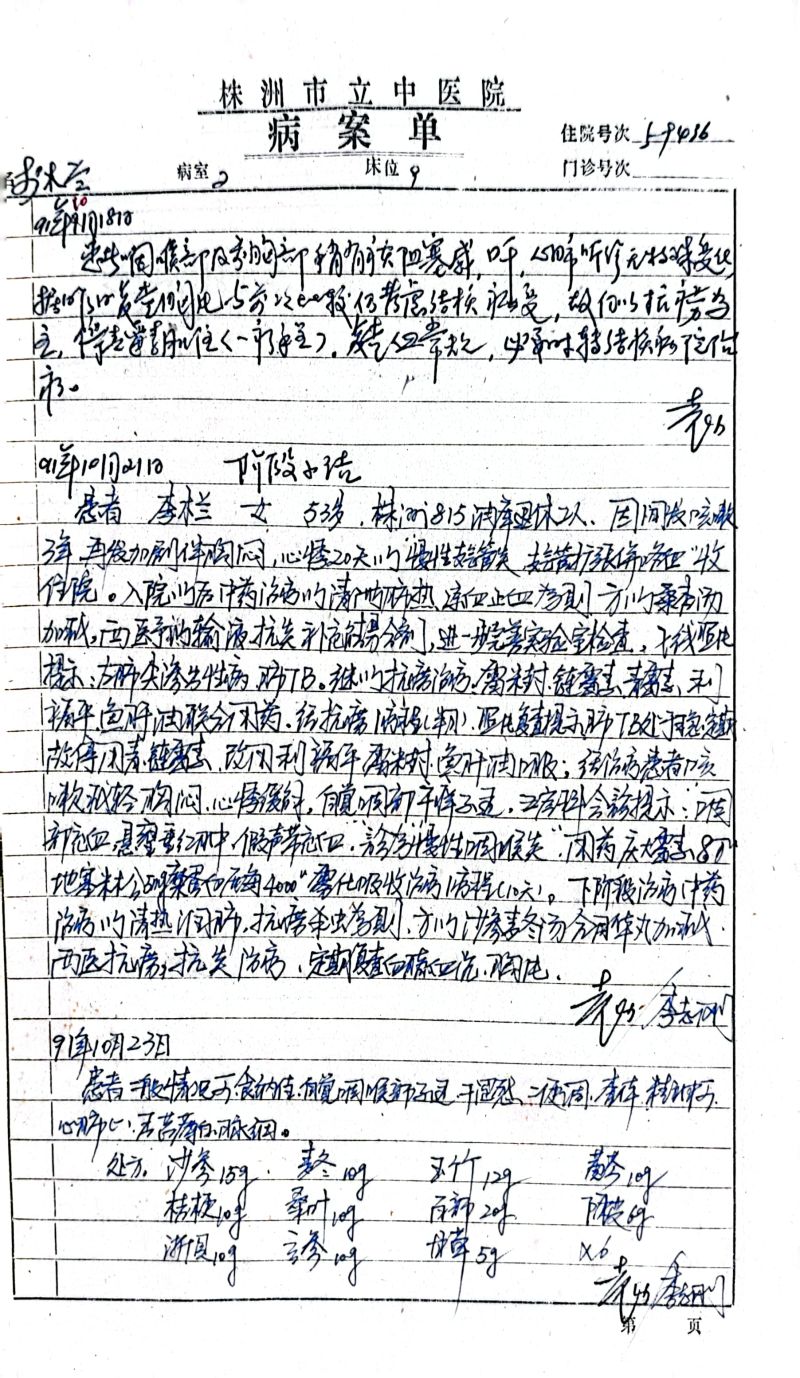 株洲市立中医院
病案单
住院号次 59436
病室 2 床位 9 门诊号次
91年10月18日
患者咽喉部及前胸部稍有阻塞感,口干,心肺听诊无特殊变化,
复查胸片与前次比较仍考虑结核,故仍以抗痨为
主,停链霉素肌注,必要时转结核科住院治
疗。
91年10月21日 阶段小结
患者 李木兰 女 53岁,株洲815油库退休工人,因间歇咳嗽
3年,再发加剧伴胸闷,心悸20天以“慢性支管炎 支管扩张伴咯血”收
住院。入院以后中药治疗以清肺热,凉血止血为则,方以桑杏汤
加减,西医予以输液,抗炎,进一步完善实验室检查,X线照片
提示:左肺尖渗出性病,肺TB。继以抗痨治疗,雷米封,链霉素,青霉素,利
福平,鱼肝油联合用药,经抗痨疗程(半月),照片复查提示肺TB处于稳定期
故停用青链霉素,改用利福平 雷米封 鱼肝油口服;经治疗患者咳
嗽减轻,胸闷、心悸缓解,自觉咽部干痒不适,五官科会诊提示:“咽
部充血,悬壅垂红肿,假声带充血”诊为“慢性咽喉炎”用药庆大霉素8万
地塞米松5mg糜蛋白酶4000u雾化吸收治疗1疗程(10天)。下阶段治疗中药
治疗以清热润肺,抗痨杀虫为则,方以沙参麦冬汤合月华丸加减,
西医抗痨,抗炎治疗,定期复查血沉,胸片。
91年10月23日
患者一般情况可,食纳佳,自觉咽喉部不适,干湿感,二便调,查体 精神可,
心肺(-),舌苔薄白,脉细。
处方:沙参15g 麦冬10g 玉竹12g 黄芩10g
桔梗10g 桑叶10g 百部20g 陈皮6g
浙贝10g 玄参10g 甘草5g ×6
第 页